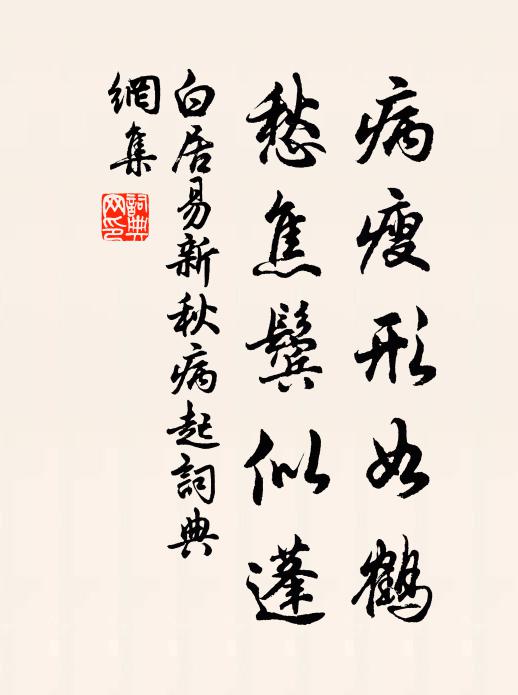 病瘦形如鶴
愁焦鬢似蓬
白居易新秋病起詞典
網集
詞典
网印